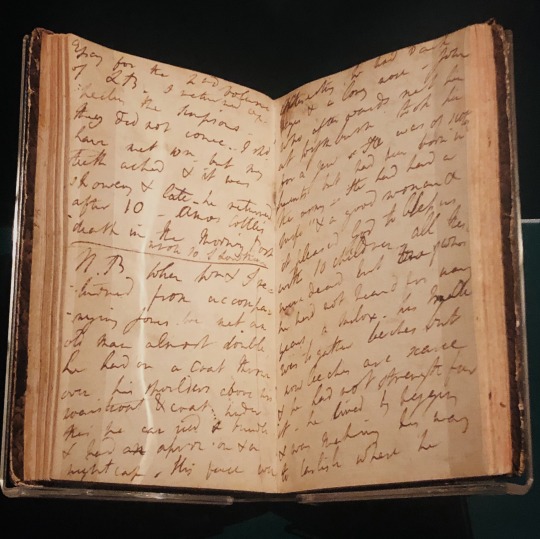 Essay for the 2nd volume
of LB. I returned expe
-cting the Simpsons -
they did not come. I shd
have met wm. but my
teeth ached & it was
showery & late - he returned
after 10 - Amos Cottles
death in the Morning Post
wrote to S Lowthian
N.B. When Wm & I re-
-turned from accompa-
-nying Jones we met an
old man almost double,
he had on a coat thrown
over his shoulders above his
waistcoat & coat. under
this he carried a bundle
& had an apron on & a
night cap. His face was
interesting. he had Dark
eyes & a long nose - John
who afterwards met him
at Wythburn took him
for a Jew. He was of Scotch
parents but had been born in
the army - He had had a
wife "& a good woman &
it pleased God to bless us
with 10 children" all these
were dead but one of whom
he had not heard for many
years, a sailor - his trade
was to gather leeches but
now leeches are scarce
& he had not strength for
it - he lived by begging
& was making his way
to Carlisle where he